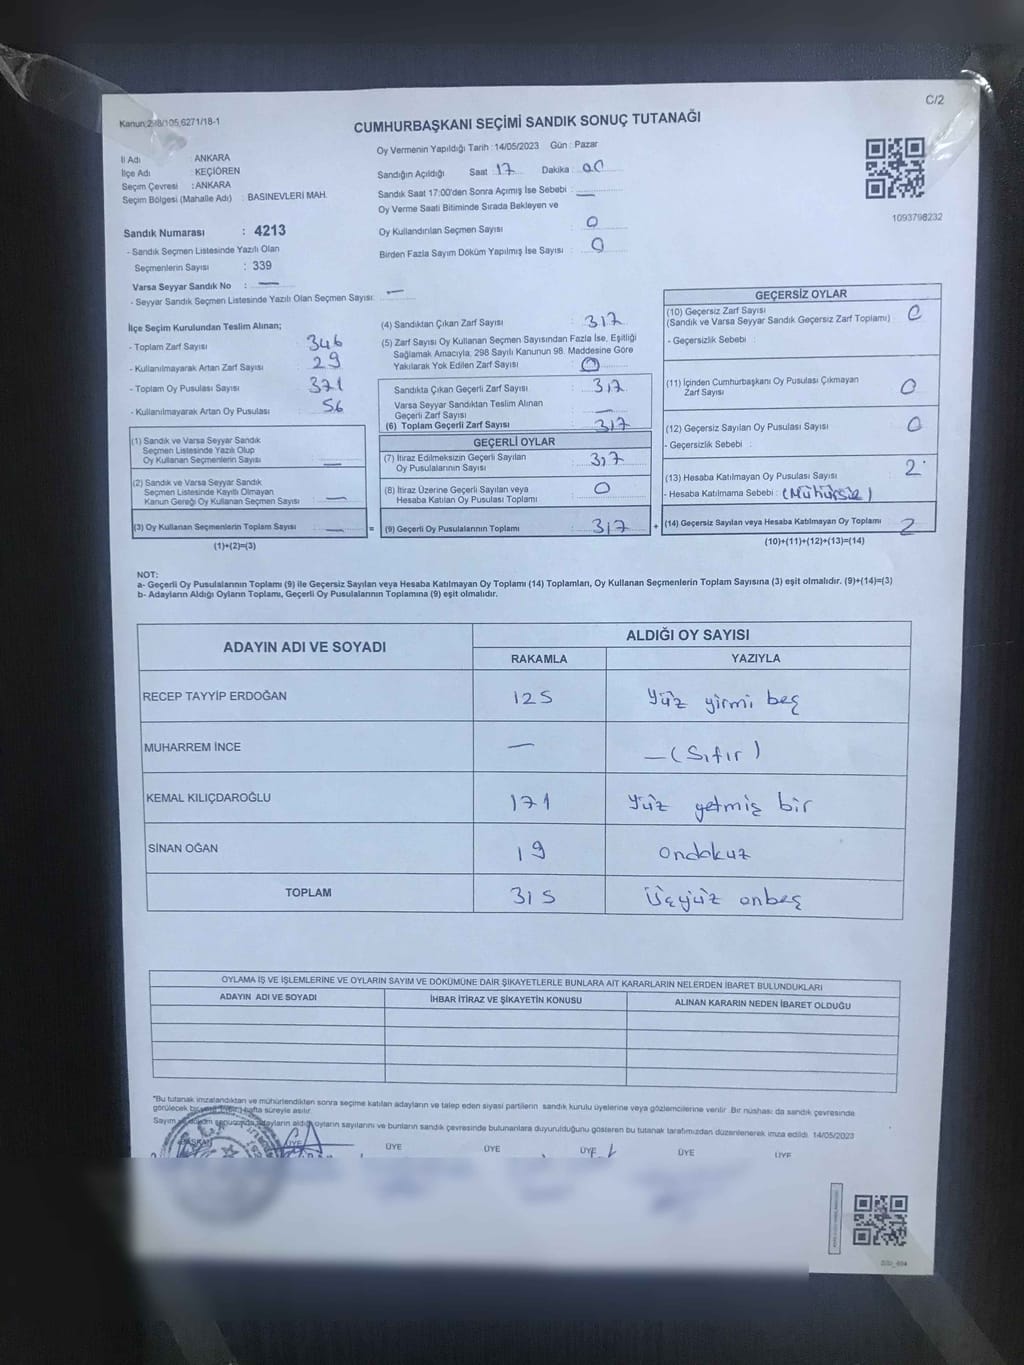 C/2
Kanun:298/105,6271/18-1
CUMHURBAŞKANI SEÇİMİ SANDIK SONUÇ TUTANAĞI
İl Adı : ANKARA
İlçe Adı : KEÇİÖREN
Seçim Çevresi : ANKARA
Seçim Bölgesi (Mahalle Adı) : BASINEVLERİ MAH.
Sandık Numarası : 4213
- Sandık Seçmen Listesinde Yazılı Olan
Seçmenlerin Sayısı : 339
Varsa Seyyar Sandık No : —
- Seyyar Sandık Seçmen Listesinde Yazılı Olan Seçmen Sayısı: —
Oy Vermenin Yapıldığı Tarih : 14/05/2023 Gün : Pazar
Sandığın Açıldığı Saat : 17 Dakika : 00
Sandık Saat 17:00'den Sonra Açımış İse Sebebi : —
Oy Verme Saati Bitiminde Sırada Bekleyen ve
Oy Kullandırılan Seçmen Sayısı : 0
Birden Fazla Sayım Döküm Yapılmış İse Sayısı : 0
1093798232
İlçe Seçim Kurulundan Teslim Alınan;
- Toplam Zarf Sayısı : 346
- Kullanılmayarak Artan Zarf Sayısı : 29
- Toplam Oy Pusulası Sayısı : 371
- Kullanılmayarak Artan Oy Pusulası : 56
(1) Sandık ve Varsa Seyyar Sandık
Seçmen Listesinde Yazılı Olup
Oy Kullanan Seçmenlerin Sayısı —
(2) Sandık ve Varsa Seyyar Sandık
Seçmen Listesinde Kayıtlı Olmayan
Kanun Gereği Oy Kullanan Seçmen Sayısı —
(3) Oy Kullanan Seçmenlerin Toplam Sayısı — =
(1)+(2)=(3)
(4) Sandıktan Çıkan Zarf Sayısı : 317
(5) Zarf Sayısı Oy Kullanan Seçmen Sayısından Fazla İse, Eşitliği
Sağlamak Amacıyla, 298 Sayılı Kanunun 98. Maddesine Göre
Yakılarak Yok Edilen Zarf Sayısı : 0
Sandıkta Çıkan Geçerli Zarf Sayısı : 317
Varsa Seyyar Sandıktan Teslim Alınan
Geçerli Zarf Sayısı : —
(6) Toplam Geçerli Zarf Sayısı : 317
GEÇERLİ OYLAR
(7) İtiraz Edilmeksizin Geçerli Sayılan
Oy Pusulalarının Sayısı : 317
(8) İtiraz Üzerine Geçerli Sayılan veya
Hesaba Katılan Oy Pusulası Toplamı : 0
(9) Geçerli Oy Pusulalarının Toplamı : 317 +
GEÇERSİZ OYLAR
(10) Geçersiz Zarf Sayısı
(Sandık ve Varsa Seyyar Sandık Geçersiz Zarf Toplamı) : 0
- Geçersizlik Sebebi :
(11) İçinden Cumhurbaşkanı Oy Pusulası Çıkmayan
Zarf Sayısı : 0
(12) Geçersiz Sayılan Oy Pusulası Sayısı : 0
- Geçersizlik Sebebi :
(13) Hesaba Katılmayan Oy Pusulası Sayısı : 2
- Hesaba Katılmama Sebebi : (Mühürsüz)
(14) Geçersiz Sayılan veya Hesaba Katılmayan Oy Toplamı 2
(10)+(11)+(12)+(13)=(14)
NOT:
a- Geçerli Oy Pusulalarının Toplamı (9) ile Geçersiz Sayılan veya Hesaba Katılmayan Oy Toplamı (14) Toplamları, Oy Kullanan Seçmenlerin Toplam Sayısına (3) eşit olmalıdır. (9)+(14)=(3)
b- Adayların Aldığı Oyların Toplamı, Geçerli Oy Pusulalarının Toplamına (9) eşit olmalıdır.
ADAYIN ADI VE SOYADI
ALDIĞI OY SAYISI
RAKAMLA YAZIYLA
RECEP TAYYİP ERDOĞAN 125 Yüz yirmi beş
MUHARREM İNCE — —(Sıfır)
KEMAL KILIÇDAROĞLU 171 Yüz yetmiş bir
SİNAN OĞAN 19 ondokuz
TOPLAM 315 Üçyüz onbeş
OYLAMA İŞ VE İŞLEMLERİNE VE OYLARIN SAYIM VE DÖKÜMÜNE DAİR ŞİKAYETLERLE BUNLARA AİT KARARLARIN NELERDEN İBARET BULUNDUKLARI
ADAYIN ADI VE SOYADI İHBAR İTİRAZ VE ŞİKAYETİN KONUSU ALINAN KARARIN NEDEN İBARET OLDUĞU
"Bu tutanak imzalandıktan ve mühürlendikten sonra seçime katılan adayların ve talep eden siyasi partilerin sandık kurulu üyelerine veya gözlemcilerine verilir. Bir nüshası da sandık çevresinde
görülecek bir yere hafta süreyle asılır.
Sayım ve döküm sonucunda adayların aldığı oyların sayılarını ve bunların sandık çevresinde bulunanlara duyurulduğunu gösteren bu tutanak tarafımızdan düzenlenerek imza edildi. 14/05/2023
BAŞKAN ÜYE ÜYE ÜYE ÜYE ÜYE ÜYE